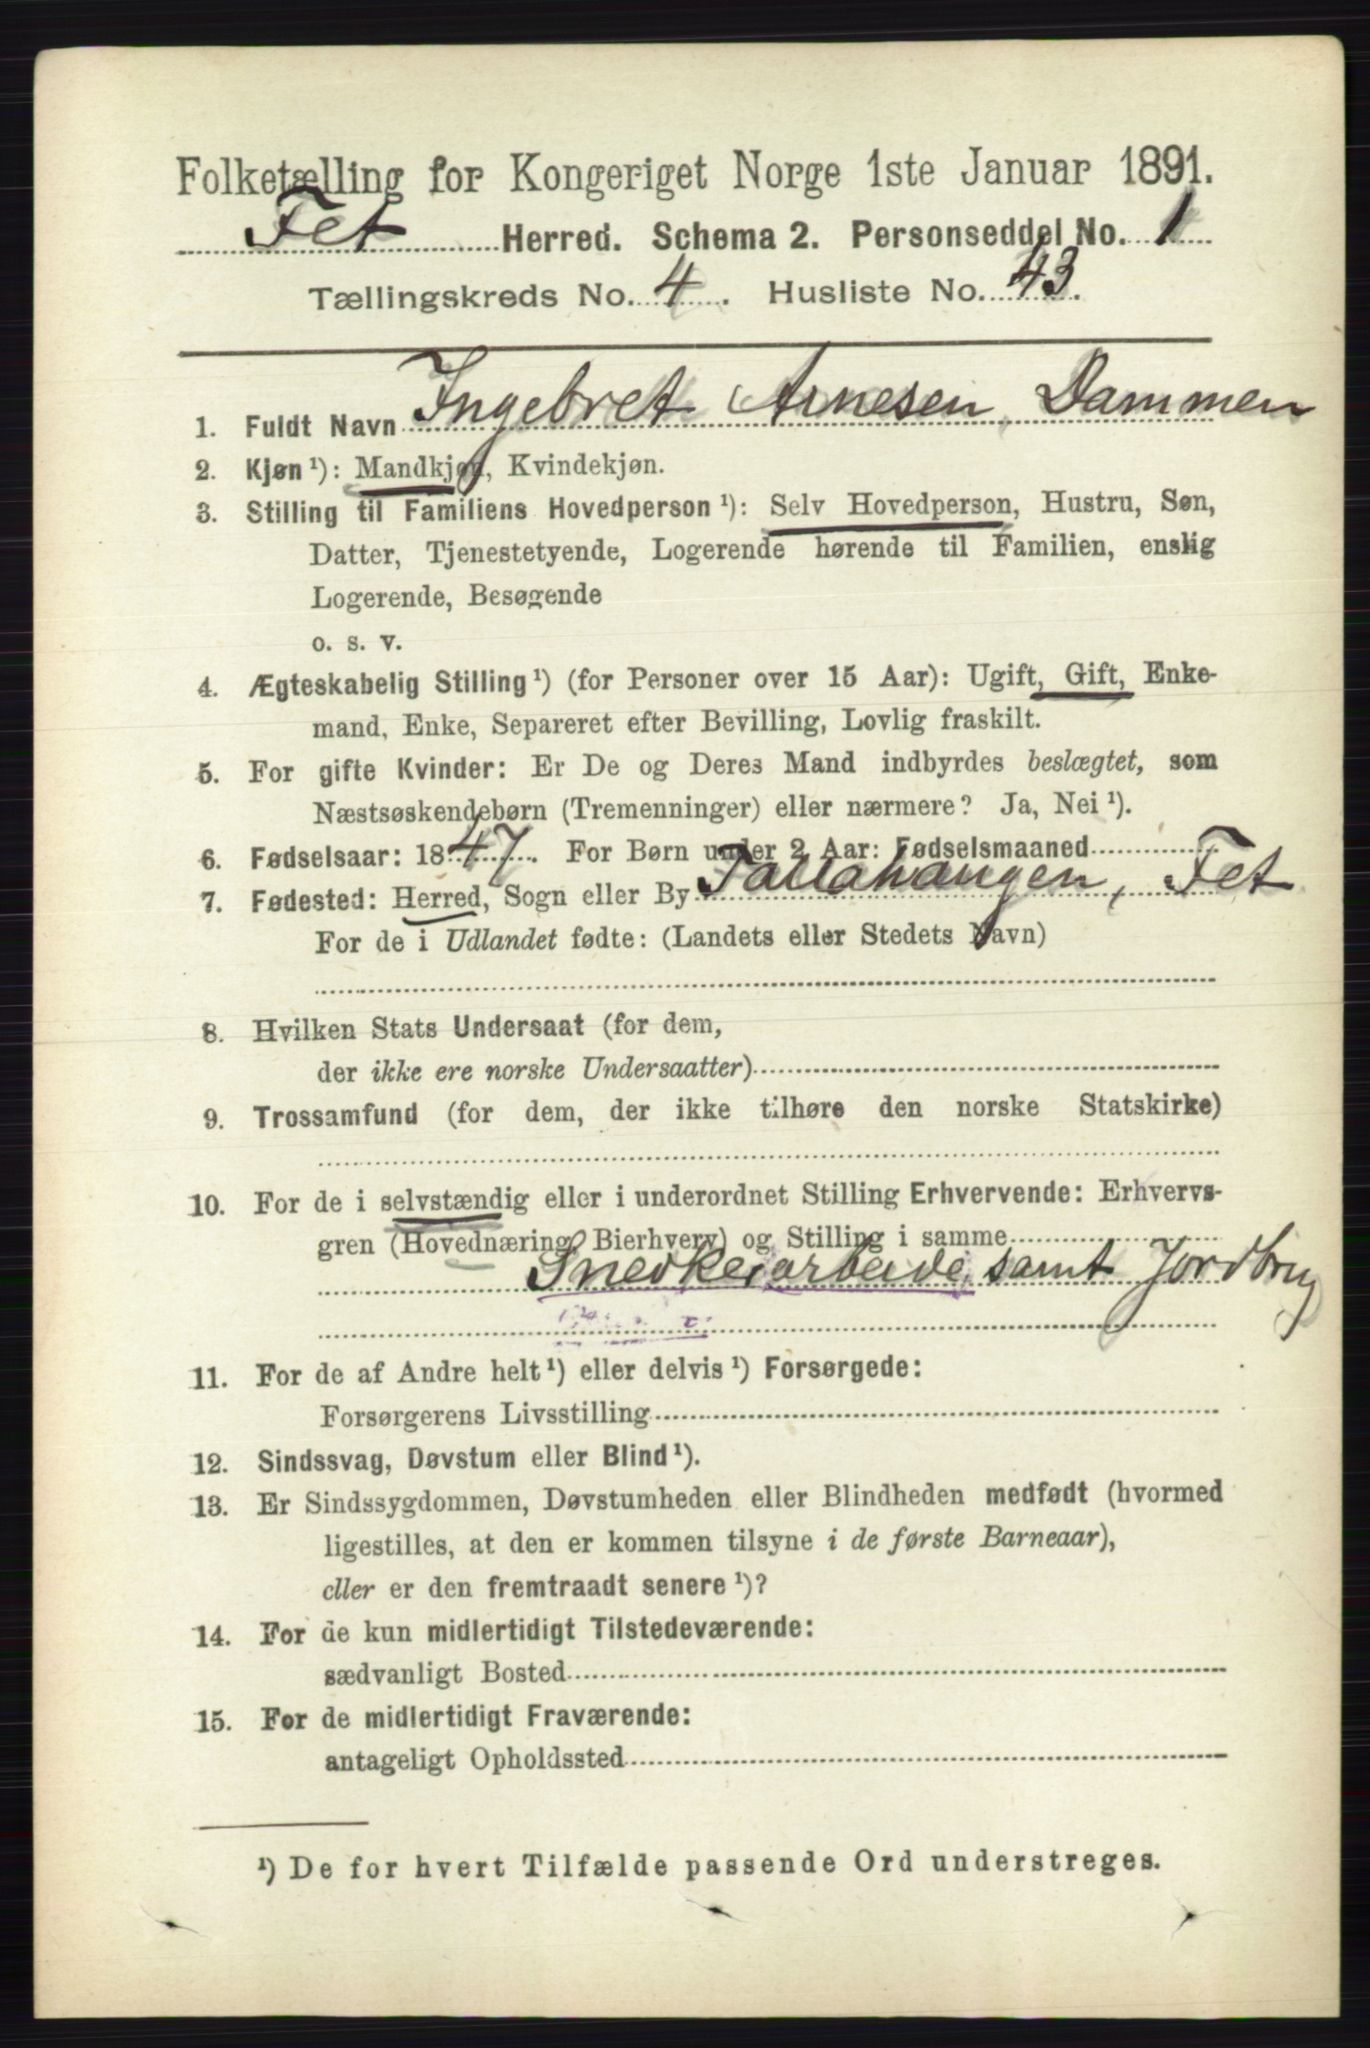 Folketælling for Kongeriget Norge 1ste Januar 1891.
Fet Herred. Schema 2. Personseddel No. 1
Tællingskreds No. 4. Husliste No. 43.
1. Fuldt Navn Ingebret Arnesen, Dammen
2. Kjøn ¹): Mandkjøn, Kvindekjøn.
3. Stilling til Familiens Hovedperson ¹): Selv Hovedperson, Hustru, Søn,
Datter, Tjenestetyende, Logerende hørende til Familien, enslig
Logerende, Besøgende
o. s. v.
4. Ægteskabelig Stilling ¹) (for Personer over 15 Aar): Ugift, Gift, Enke-
mand, Enke, Separeret efter Bevilling, Lovlig fraskilt.
5. For gifte Kvinder: Er De og Deres Mand indbyrdes beslægtet, som
Næstsøskendebørn (Tremenninger) eller nærmere? Ja, Nei ¹).
6. Fødselsaar: 1847. For Børn under 2 Aar: Fødselsmaaned
7. Fødested: Herred, Sogn eller By Tallahaugen, Fet
For de i Udlandet fødte: (Landets eller Stedets Navn)
8. Hvilken Stats Undersaat (for dem,
der ikke ere norske Undersaatter)
9. Trossamfund (for dem, der ikke tilhøre den norske Statskirke)
10. For de i selvstændig eller i underordnet Stilling Erhvervende: Erhvervs-
gren (Hovednæring, Bierhverv) og Stilling i samme
Snedkerarbeide, samt Jordbrug
11. For de af Andre helt ¹) eller delvis ¹) Forsørgede:
Forsørgerens Livsstilling
12. Sindssvag, Døvstum eller Blind ¹).
13. Er Sindssygdommen, Døvstumheden eller Blindheden medfødt (hvormed
ligestilles, at den er kommen tilsyne i de første Barneaar),
eller er den fremtraadt senere ¹)?
14. For de kun midlertidigt Tilstedeværende:
sædvanligt Bosted
15. For de midlertidigt Fraværende:
antageligt Opholdssted
¹) De for hvert Tilfælde passende Ord understreges.